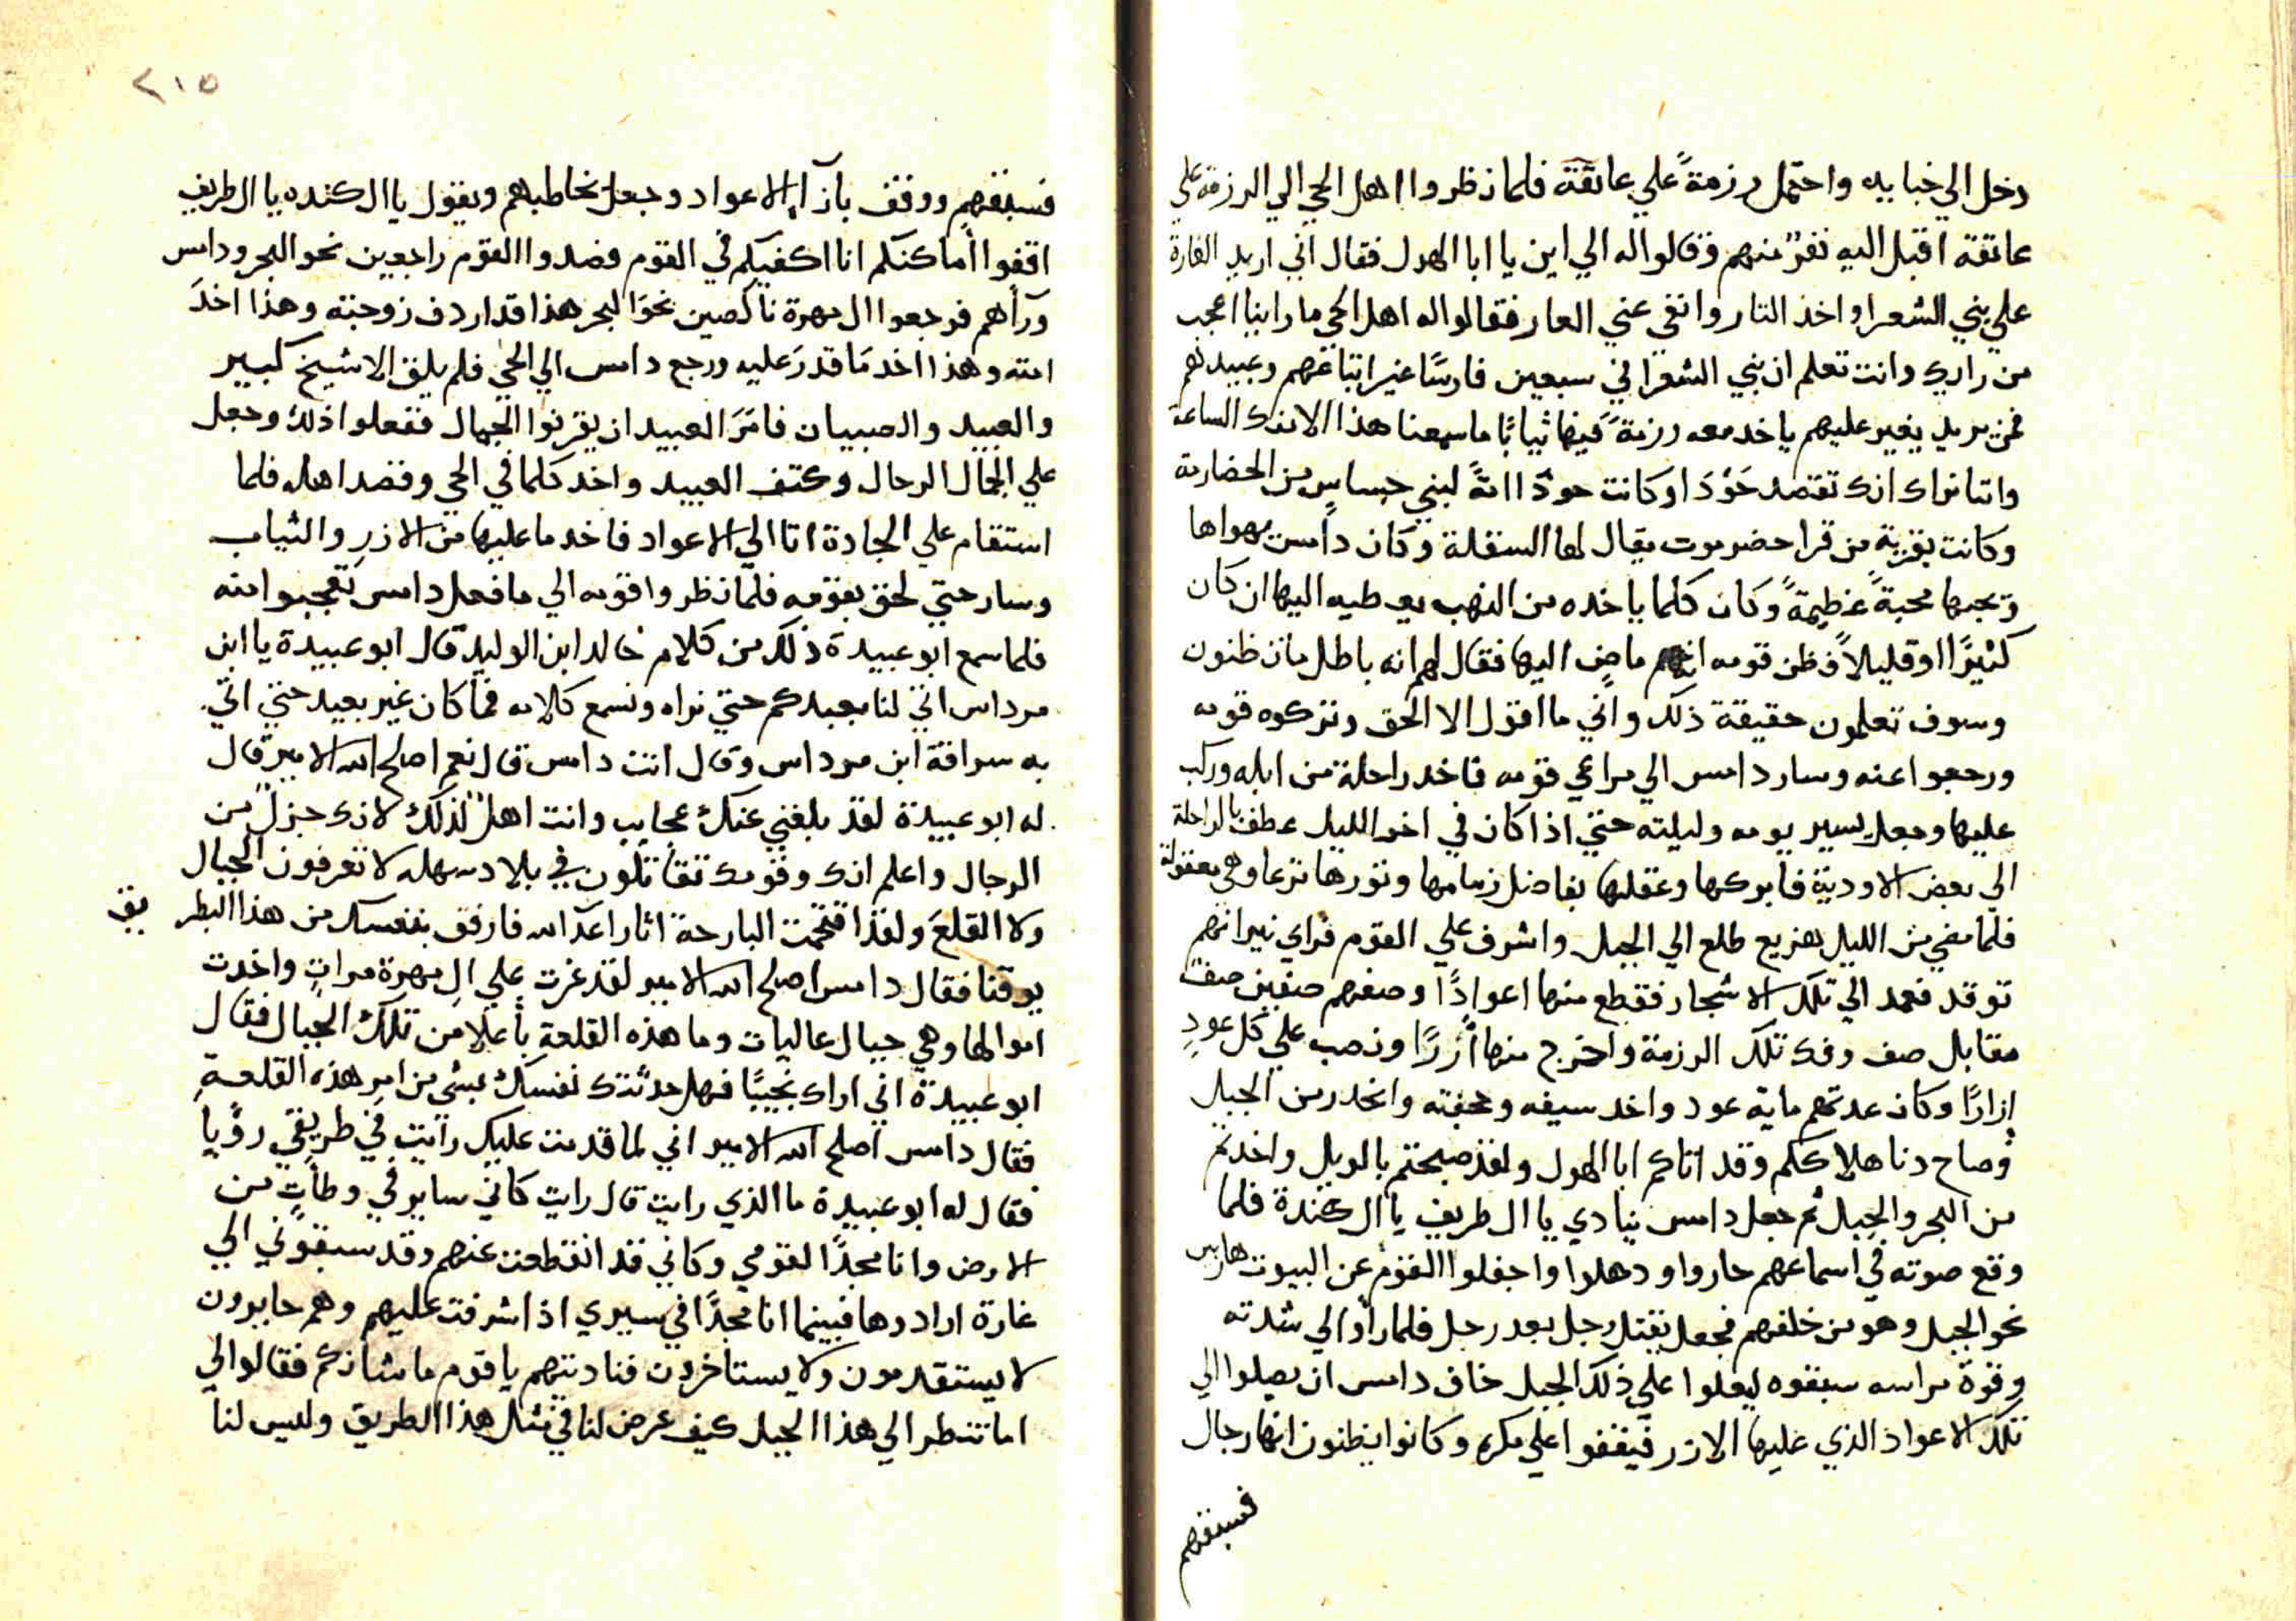 دخل الي خبايه واحتمل رزمةً علي عاتقة فلما نظروا اهل الحي الي الرزمة علي
عاتقة اقبل اليه نفرٌ منهم وقالوا له الي اين يا ابا الهول فقال اني اريد الغارة
علي بني الشعرا واخذ التار وانفي عني العار فقالوا له اهل الحي ما راينا اعجب
من رايك وانت تعلم ان بني الشعرا في سبعين فارسًا غير اتباعهم وعبيدهم
فمن يريد يغير عليهم ياخد معه رزمةً فيها ثيابًا ما سمعنا هذا الا منك الساعة
واننا نراك انك تقصد حَوْدَا وكانت حودَا امةً لبني حساسٍ من الحضارمة
وكانت بقريةٍ من قرا حضرموت يقال لها السفلة وكان دامس يهواها
ويحبها محبةً عظيمةً وكان كلما ياخده من النهب يعطيه اليها ان كان
كثيرًا او قليلاً فظن قومه انه ماضٍ اليها فقال لهم انه باطل ما تظنون
وسوف تعلمون حقيقة ذلك واني ما اقول الا الحق وتركوه قومه
ورجعوا عنه وسار دامس الي مراعي قومه فاخد راحلة من ابله وركب
عليها وجعل يسير يومه وليلته حتي اذا كان في اخر الليل عطف بالراحلة
الي بعض الاودية فابركها وعقلها بفاضل زمامها وتورها ترعا وهي معقولة
فلما مضي من الليل هزيع طلع الي الجبل واشرف علي القوم فراي نيرانهم
توقد فعمد الي تلك الاشجار فقطع منها اعوادًا وصفهم صفين صف
مقابل صف وفك تلك الرزمة واخرج منها أزرًا ونصب علي كل عودٍ
إزارًا وكان عدتهم ماية عود واخد سيفه وحجفته وانحدر من الجبل
وصاح دنا هلاككم وقد اتاكم ابا الهول ولقد صبحتم بالويل واخدتم
من البحر والجبل ثم جعل دامس ينادي يا ال طريف يا ال كندة فلما
وقع صوته في اسماعهم حاروا ودهلوا واجفلوا القوم عن البيوت هاربين
نحو الجبل وهو من خلفهم فجعل يقتل رجل بعد رجل فلما رأوا الي شدته
وقوة مراسه سبقوه ليعلوا علي ذلك الجبل خاف دامس ان يصلوا الي
تلك الاعواد الذي عليها الازر فيقفوا علي مكره وكانوا يظنون انها رجال
فسبقهم
٢١٥
فسبقهم ووقف بازآء الاعواد وجعل يخاطبهم ويقول يا ال كنده يا ال طريف
اقفوا أماكنكم انا اكفيكم في القوم فصدوا القوم راجعين نحو البحر ودامس
ورآهم فرجعوا ال مهرة ناكصين نحو البحر هذا قد اردف زوجته وهذا اخد
امته وهذا اخد مَا قدرَ عليه ورجع دامس الي الحي فلم يلق الا شيخ كبير
والعبيد والصبيان فامَرَ العبيد ان يقربوا الجمال ففعلوا ذلك وجعل
علي الجمال الرحال وكتف العبيد واخد كلما في الحي وقصد اهله فلما
استقام علي الجادة اتا الي الاعواد فاخد ما عليها من الازر والثياب
وسار حتي لحق بقومه فلما نظروا قومه الي ما فعل دامس تعجبوا منه
فلما سمع ابو عبيدة ذلك من كلام خالد ابن الوليد قال ابو عبيدة يا ابن
مرداس اتني لنا بعبدكم حتي نراه ونسمع كلامه فما كان غير بعيد حتي اتي
به سراقة ابن مرداس وقال انت دامس قال نعم اصلح الله الامير قال
له ابو عبيدة لقد بلغني عنك عجايب وانت اهلٌ لذلك لانك جزلٌ من
الرجال واعلم انك وقومك تقاتلون في بلاد سهله لا تعرفون الجبال
ولا القلعَ ولقد اقتحمت البارحة اثار اعدآ الله فارفق بنفسك من هذا البطريق
يوقنا فقال دامس اصلح الله الامير لقد غرت علي ال مهرة مراتٍ واخدت
اموالها وهي جبال عاليات وما هذه القلعة بأعلا من تلك الجبال فقال
ابو عبيدة اني اراك نجيبًا فهل حدثتك نفسك بشي من امر هذه القلعة
فقال دامس اصلح الله الامير اني لما قدمت عليك رايت في طريقي رؤيا
فقال له ابو عبيدة ما الذي رايت قال رايت كاني ساير في وطأت من
الارض وانا مجدًا لقومي وكاني قد انقطعت عنهم وقد سبقوني الي
غارة ارادوها فبينما انا مجدًا في سيري اذ اشرفت عليهم وهم حايرون
لا يستقدمون ولا يستاخرون فنادبتهم يا قوم ما شانكم فقالوا لي
اما تنظر الي هذا الجبل كيف عرض لنا في مثل هذا الطريق وليس لنا